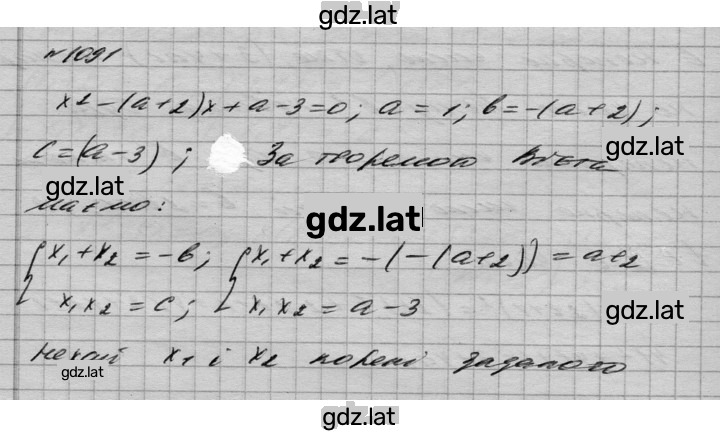 gdz.lat
№1091
x² - (a+2)x + a - 3 = 0; a = 1; b = -(a+2);
c = (a-3); За теоремою Вієта
gdz.lat gdz.lat
маємо:
gdz.lat
{ x₁ + x₂ = -b; { x₁ + x₂ = -(-(a+2)) = a+2
x₁x₂ = c; x₁x₂ = a - 3
gdz.lat
Нехай x₁ і x₂ корені заданого
gdz.lat
gdz.lat